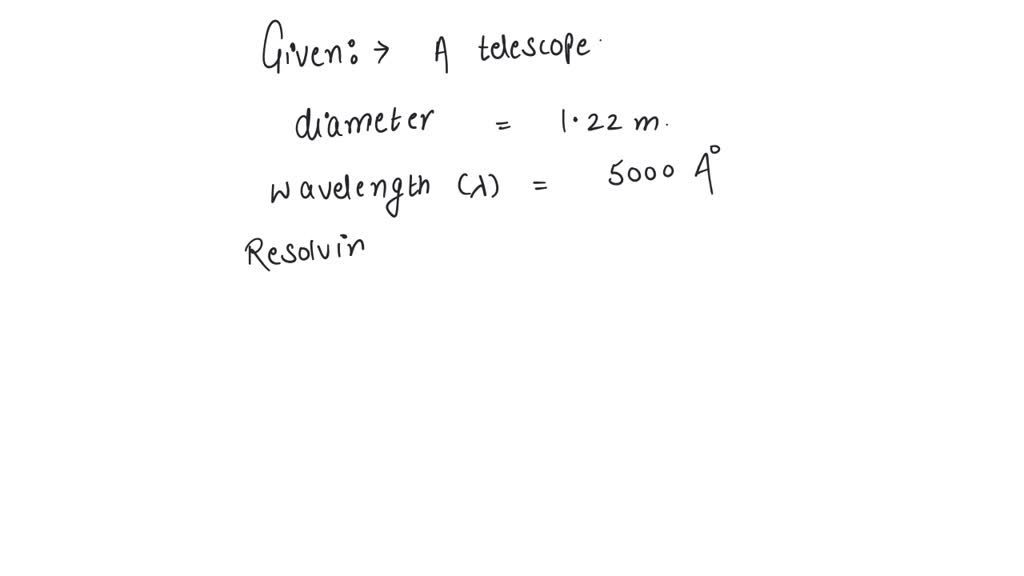 Given:→ A telescope.
diameter = 1.22 m.
wavelength (λ) = 5000 A°
Resolvin